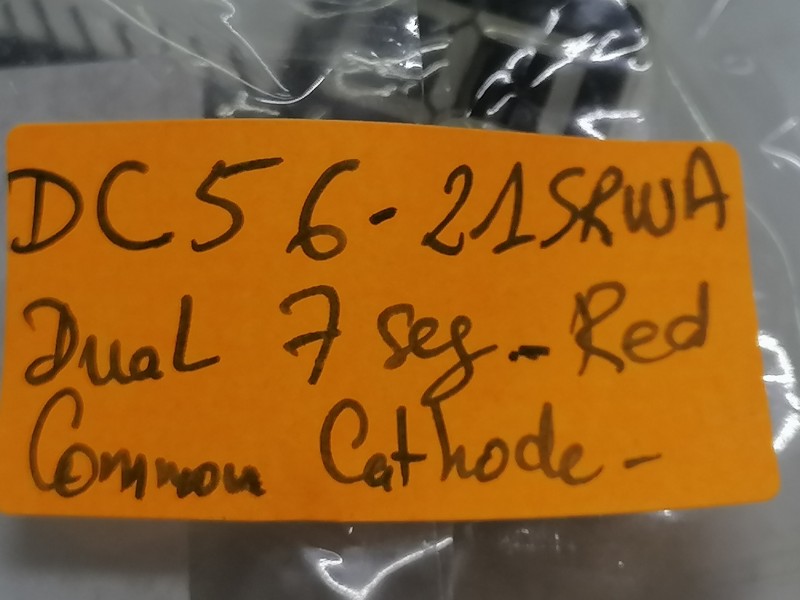 DC56-21SRWA
Dual 7 seg - Red
Common Cathode -